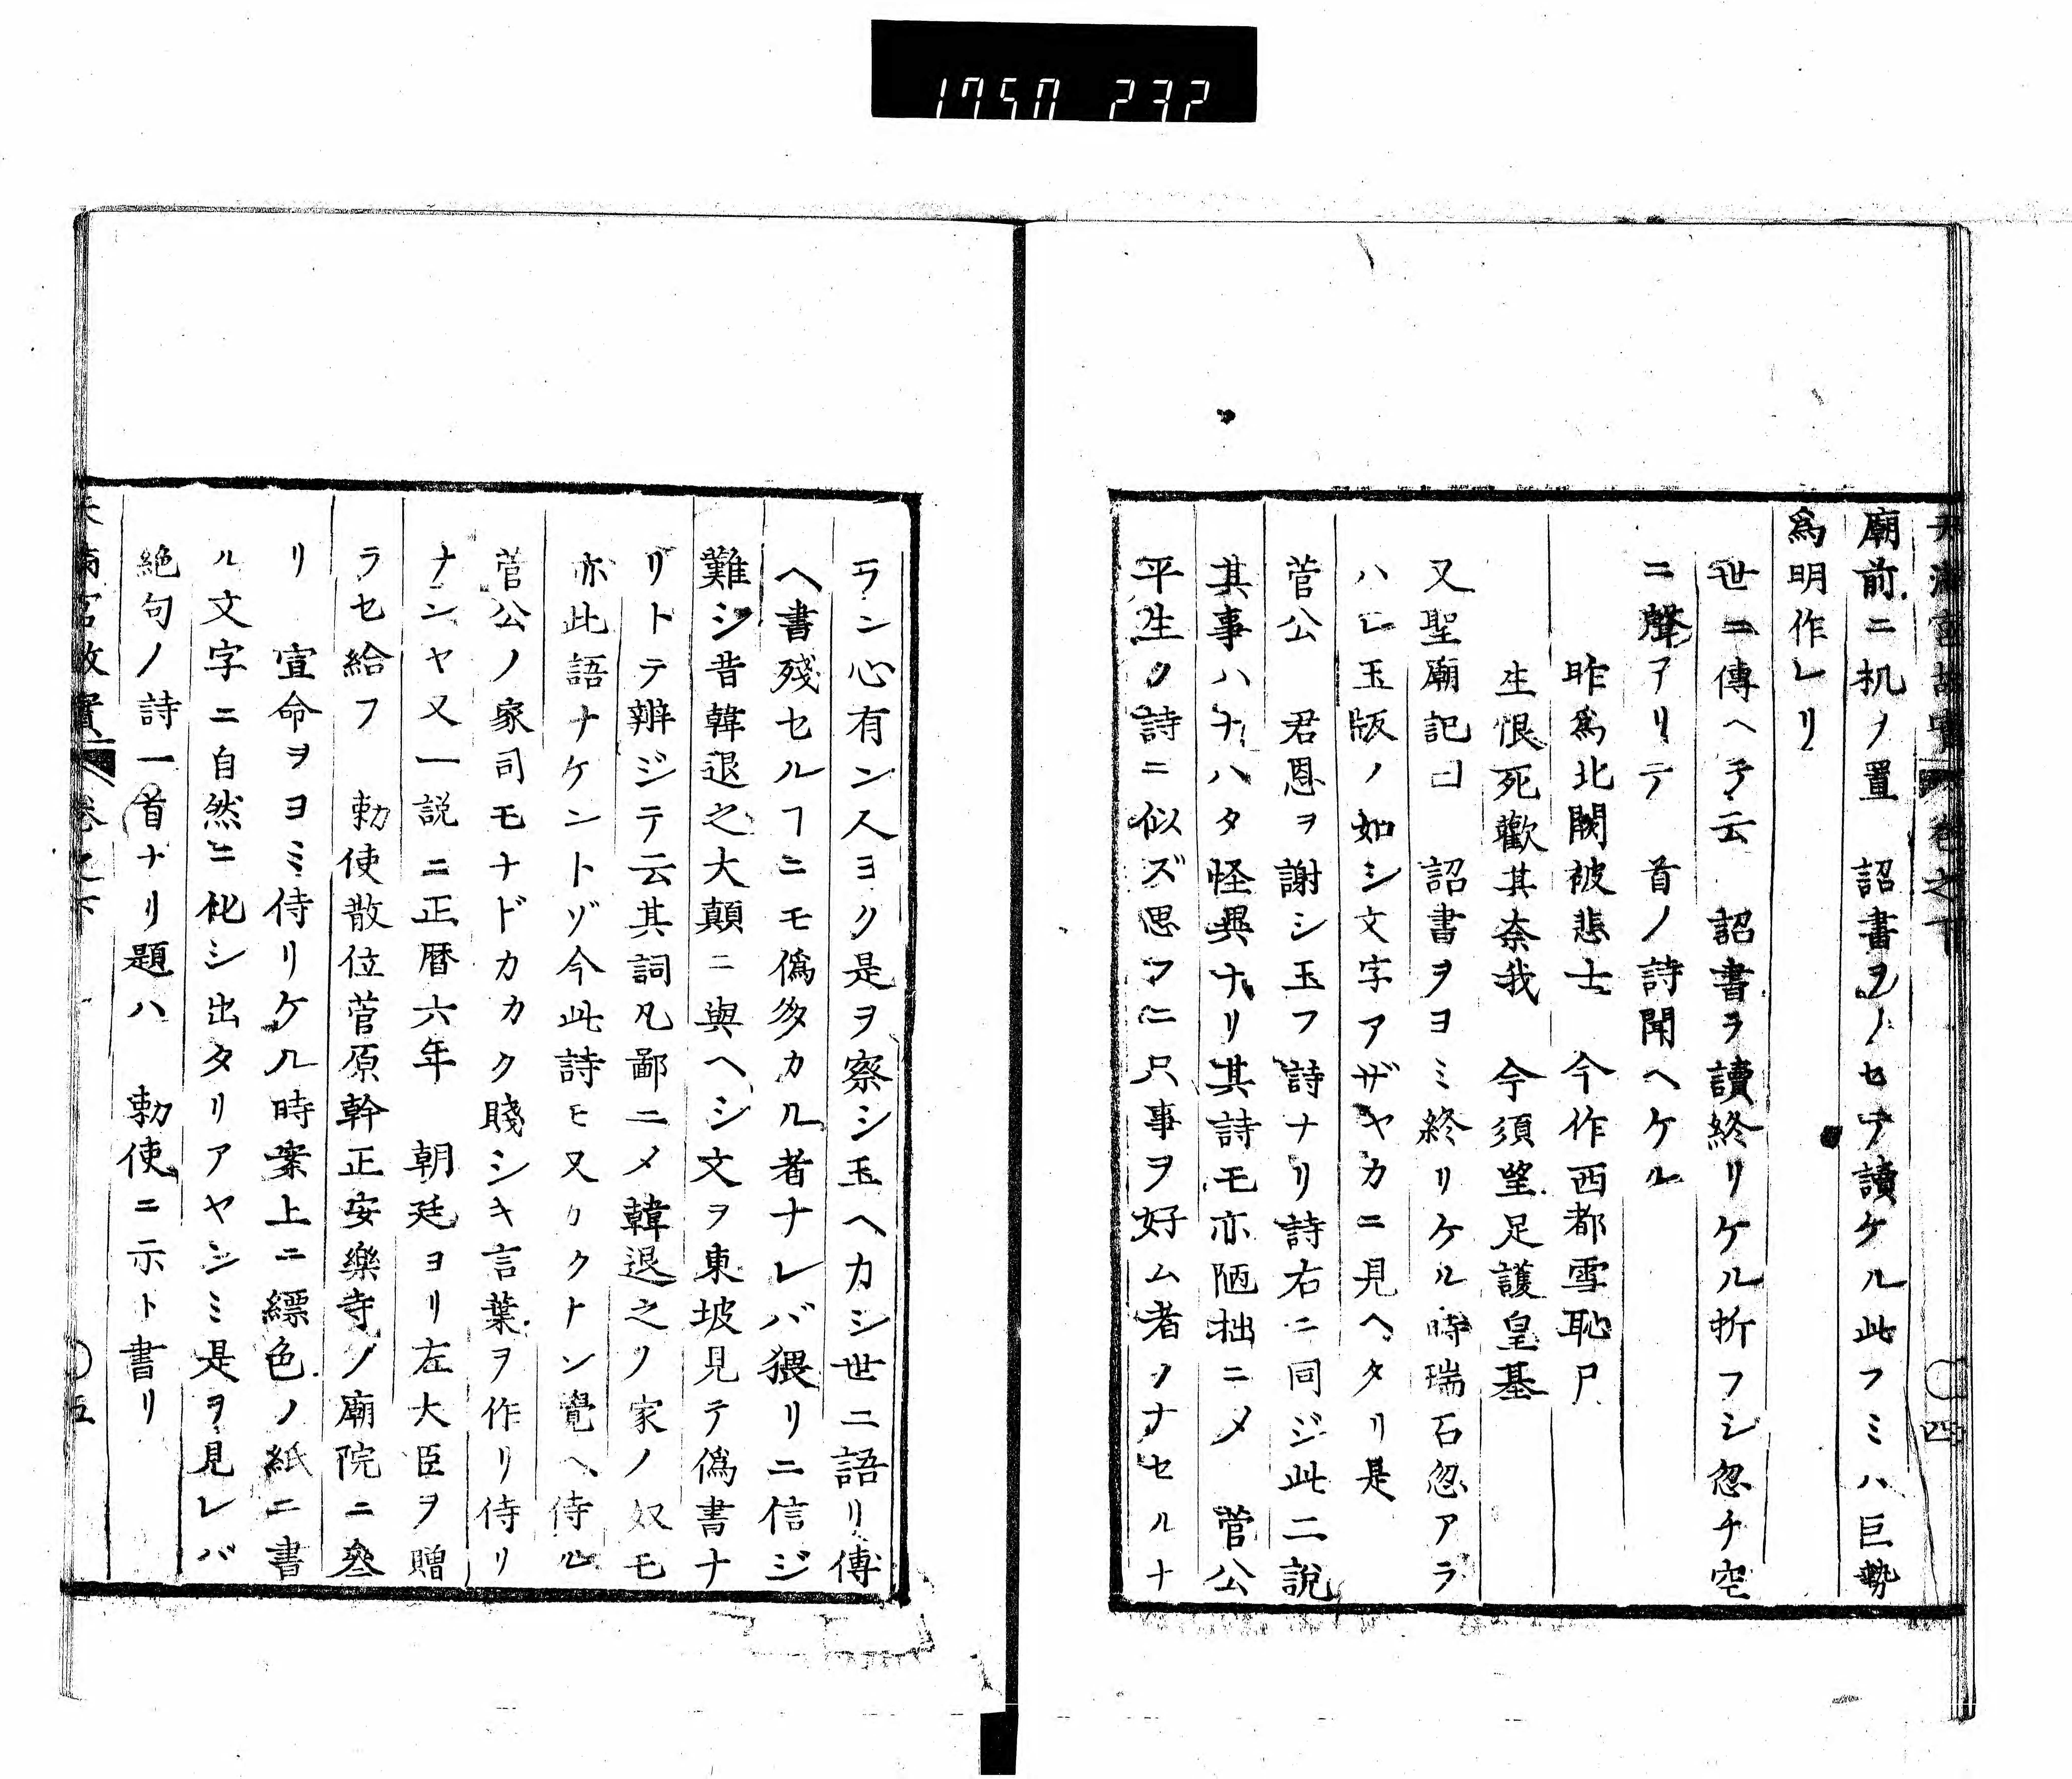 1750 232
廟前ニ机ノ置　詔書ヲノセテ讀ケル此フミハ巨勢
爲明作レリ
世ニ傳ヘテ云　詔書ヲ讀終リケル折フシ忽チ空
ニ聲アリテ　首ノ詩聞ヘケル
昨爲北闕被悲士　今作西都雪恥尸
生恨死歡其奈我　今須望足護皇基
又聖廟記曰　詔書ヲヨミ終リケル時瑞石忽アラ
ハレ玉版ノ如シ文字アザヤカニ見ヘタリ是
菅公　君恩ヲ謝シ玉フ詩ナリ詩右ニ同ジ此二說
其事ハナハタ怪異ナリ其詩モ亦陋拙ニメ　菅公
平生ノ詩ニ似ズ思フニ只事ヲ好ム者ノナセルナ
ラン心有ン人ヨク是ヲ察シ玉ヘカシ世ニ語リ傳
ヘ書殘セルフニモ僞多カル者ナレバ猥リニ信ジ
難シ昔韓退之大顚ニ與ヘシ文ヲ東坡見テ僞書ナ
リトテ辨ジテ云其詞凡鄙ニメ韓退之ノ家ノ奴モ
亦此語ナケントゾ今此詩モ又カクナン覺ヘ侍ル
菅公ノ家司モナドカカク賤シキ言葉ヲ作リ侍リ
ナンヤ又一説ニ正暦六年　朝廷ヨリ左大臣ヲ贈
ラセ給フ　勅使散位菅原幹正安樂寺ノ廟院ニ叅
リ　宣命ヲヨミ侍リケル時案上ニ縹色ノ紙ニ書
ル文字ニ自然ニ化シ出タリアヤシミ是ヲ見レバ
絶句ノ詩一首ナリ題ハ　勅使ニ示ト書リ
卷之下
五